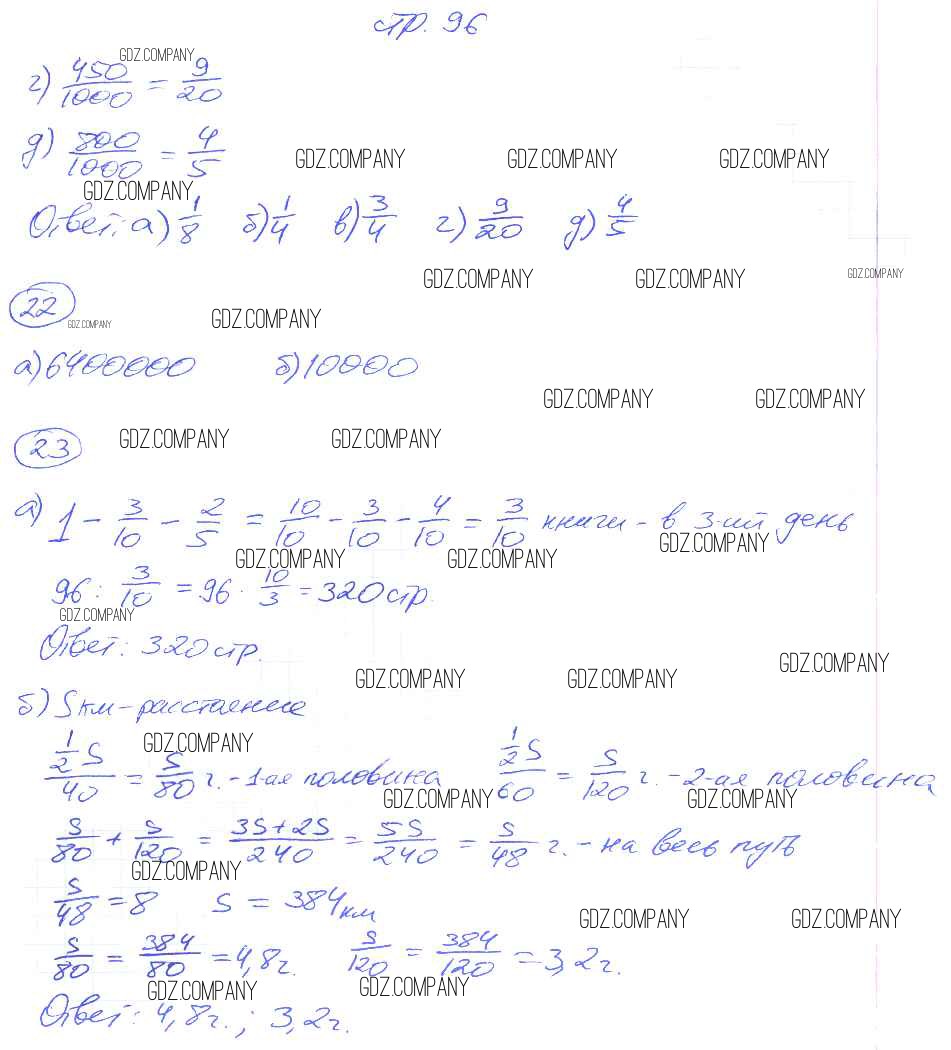 стр. 96
GDZ.COMPANY
г) 450/1000 = 9/20
д) 800/1000 = 4/5
GDZ.COMPANY GDZ.COMPANY GDZ.COMPANY
GDZ.COMPANY
Ответ: а) 1/8 б) 1/4 в) 3/4 г) 9/20 д) 4/5
GDZ.COMPANY GDZ.COMPANY GDZ.COMPANY
22
GDZ.COMPANY GDZ.COMPANY
а) 6400000 б) 10000
GDZ.COMPANY GDZ.COMPANY
23
GDZ.COMPANY GDZ.COMPANY
а) 1 - 3/10 - 2/5 = 10/10 - 3/10 - 4/10 = 3/10 книги - в 3-ий день
GDZ.COMPANY GDZ.COMPANY GDZ.COMPANY
96 : 3/10 = 96 · 10/3 = 320 стр.
GDZ.COMPANY
Ответ: 320 стр.
GDZ.COMPANY GDZ.COMPANY GDZ.COMPANY
б) S км - расстаение
GDZ.COMPANY
1/2 S/40 = S/80 г. - 1-ая половина 1/2 S/60 = S/120 г. - 2-ая половина
GDZ.COMPANY GDZ.COMPANY
S/80 + S/120 = 3S+2S/240 = 5S/240 = S/48 г. - на весь путь
GDZ.COMPANY
S/48 = 8 S = 384 км
GDZ.COMPANY GDZ.COMPANY
S/80 = 384/80 = 4,8 г. S/120 = 384/120 = 3,2 г.
GDZ.COMPANY GDZ.COMPANY
Ответ: 4,8 г.; 3,2 г.